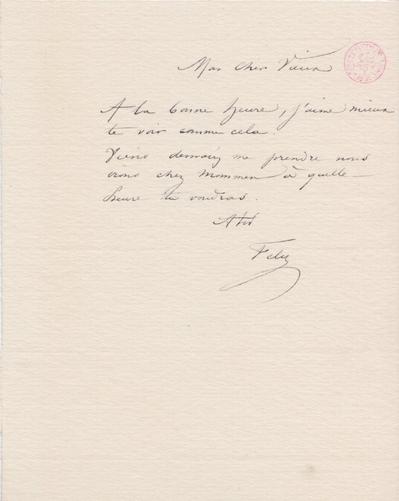 Mon cher Vieux
A la bonne heure, j'aime mieux
te voir comme cela.
Viens demain me prendre nous
irons chez Mommen à quelle
heure tu voudras.
A toi
Félix